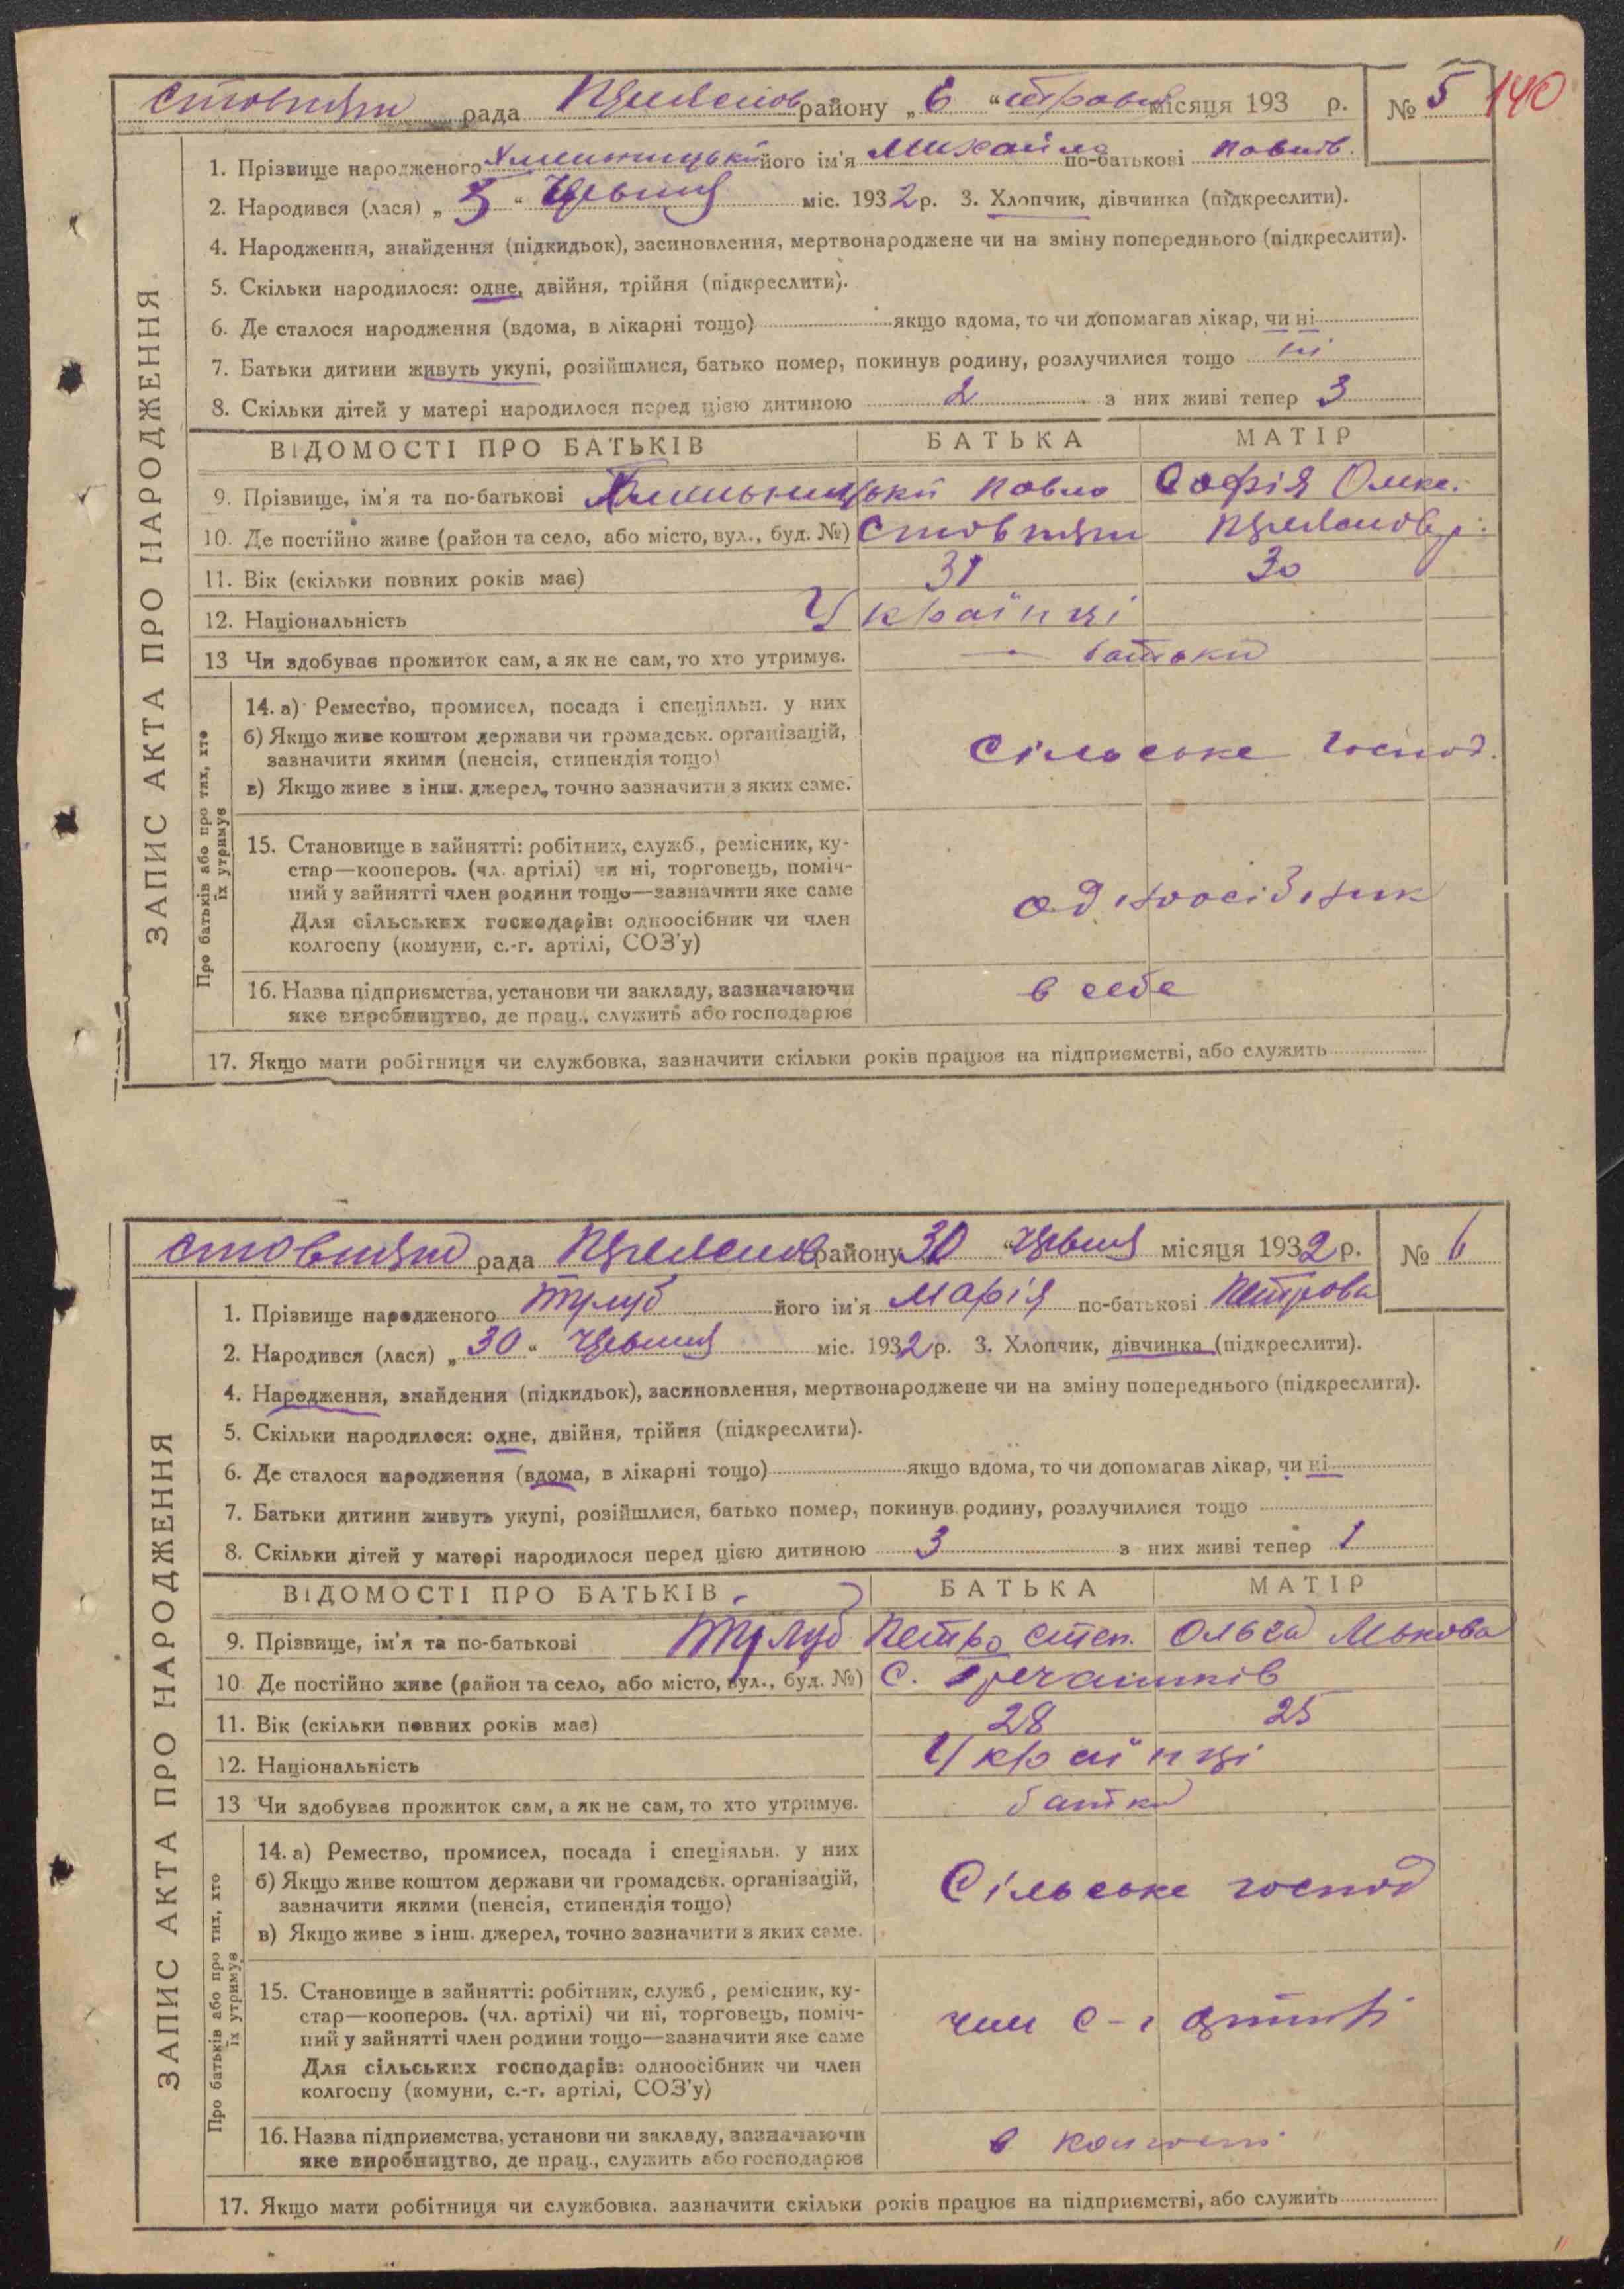 рада району „ 6 “ місяця 193 р. № 5 140
ЗАПИС АКТА ПРО НАРОДЖЕННЯ
1. Прізвище народженого його ім'я Михайло по-батькові Павлов.
2. Народився (лася) „ 5 “ міс. 1932 р. 3. Хлопчик, дівчинка (підкреслити).
4. Народження, знайдення (підкидьок), засиновлення, мертвонароджене чи на зміну попереднього (підкреслити).
5. Скільки народилося: одне, двійня, трійня (підкреслити).
6. Де сталося народження (вдома, в лікарні тощо) якщо вдома, то чи допомагав лікар, чи ні
7. Батьки дитини живуть укупі, розійшлися, батько помер, покинув родину, розлучилися тощо ні
8. Скільки дітей у матері народилося перед цією дитиною 2 з них живі тепер 3
ВІДОМОСТІ ПРО БАТЬКІВ БАТЬКА МАТІР
9. Прізвище, ім'я та по-батькові Павло Софія
10. Де постійно живе (район та село, або місто, вул., буд. №)
11. Вік (скільки повних років має) 31 30
12. Національність Українці
13 Чи здобуває прожиток сам, а як не сам, то хто утримує. — батьки
Про батьків або про тих, хто їх утримує
14. а) Ремество, промисел, посада і спеціяльн. у них
б) Якщо живе коштом держави чи громадськ. організацій,
зазначити якими (пенсія, стипендія тощо) Сільське господ.
в) Якщо живе з інш. джерел, точно зазначити з яких саме.
15. Становище в зайнятті: робітник, служб., ремісник, ку-
стар—кооперов. (чл. артілі) чи ні, торговець, поміч-
ний у зайнятті член родини тощо—зазначити яке саме
Для сільських господарів: одноосібник чи член одноосібник
колгоспу (комуни, с.-г. артілі, СОЗ'у)
16. Назва підприємства, установи чи закладу, зазначаючи в себе
яке виробництво, де прац., служить або господарює
17. Якщо мати робітниця чи службовка, зазначити скільки років працює на підприємстві, або служить
рада району 30 “ місяця 1932 р. № 6
ЗАПИС АКТА ПРО НАРОДЖЕННЯ
1. Прізвище народженого Тулуб його ім'я Марія по-батькові Петрова
2. Народився (лася) „ 30 “ міс. 1932 р. 3. Хлопчик, дівчинка (підкреслити).
4. Народження, знайдення (підкидьок), засиновлення, мертвонароджене чи на зміну попереднього (підкреслити).
5. Скільки народилося: одне, двійня, трійня (підкреслити).
6. Де сталося народження (вдома, в лікарні тощо) якщо вдома, то чи допомагав лікар, чи ні
7. Батьки дитини живуть укупі, розійшлися, батько помер, покинув родину, розлучилися тощо
8. Скільки дітей у матері народилося перед цією дитиною 3 з них живі тепер 1
ВІДОМОСТІ ПРО БАТЬКІВ БАТЬКА МАТІР
9. Прізвище, ім'я та по-батькові Тулуб Петро Степ. Ольга
10 Де постійно живе (район та село, або місто, вул., буд. №) с.
11. Вік (скільки повних років має) 28 25
12. Національність Українці
13 Чи здобуває прожиток сам, а як не сам, то хто утримує. батки
Про батьків або про тих, хто їх утримує
14. а) Ремество, промисел, посада і спеціяльн. у них
б) Якщо живе коштом держави чи громадськ. організацій, Сільське господ
зазначити якими (пенсія, стипендія тощо)
в) Якщо живе з інш. джерел, точно зазначити з яких саме.
15. Становище в зайнятті: робітник, служб., ремісник, ку-
стар—кооперов. (чл. артілі) чи ні, торговець, поміч- член с-г артілі
ний у зайнятті член родини тощо—зазначити яке саме
Для сільських господарів: одноосібник чи член
колгоспу (комуни, с.-г. артілі, СОЗ'у)
16. Назва підприємства, установи чи закладу, зазначаючи в колгоспі
яке виробництво, де прац., служить або господарює
17. Якщо мати робітниця чи службовка, зазначити скільки років працює на підприємстві, або служить